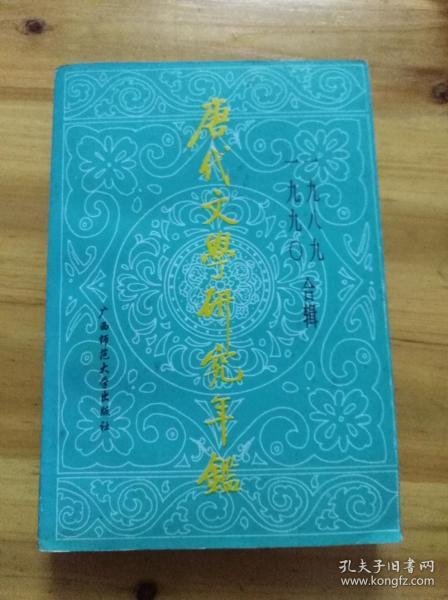 唐代文學研究年鑑
一九八九
一九九〇
合辑
广西师范大学出版社
孔夫子旧书网
www.kongfz.com